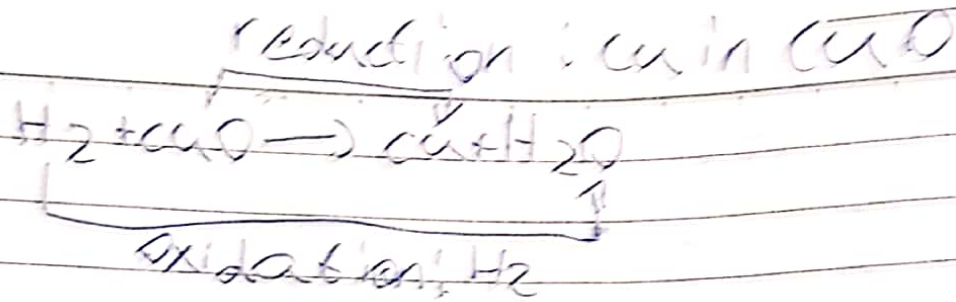 reduction : Cu in CuO
H2 + CuO → Cu + H2O
oxidation; H2